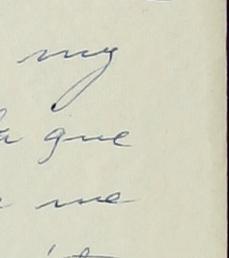 my
que
me